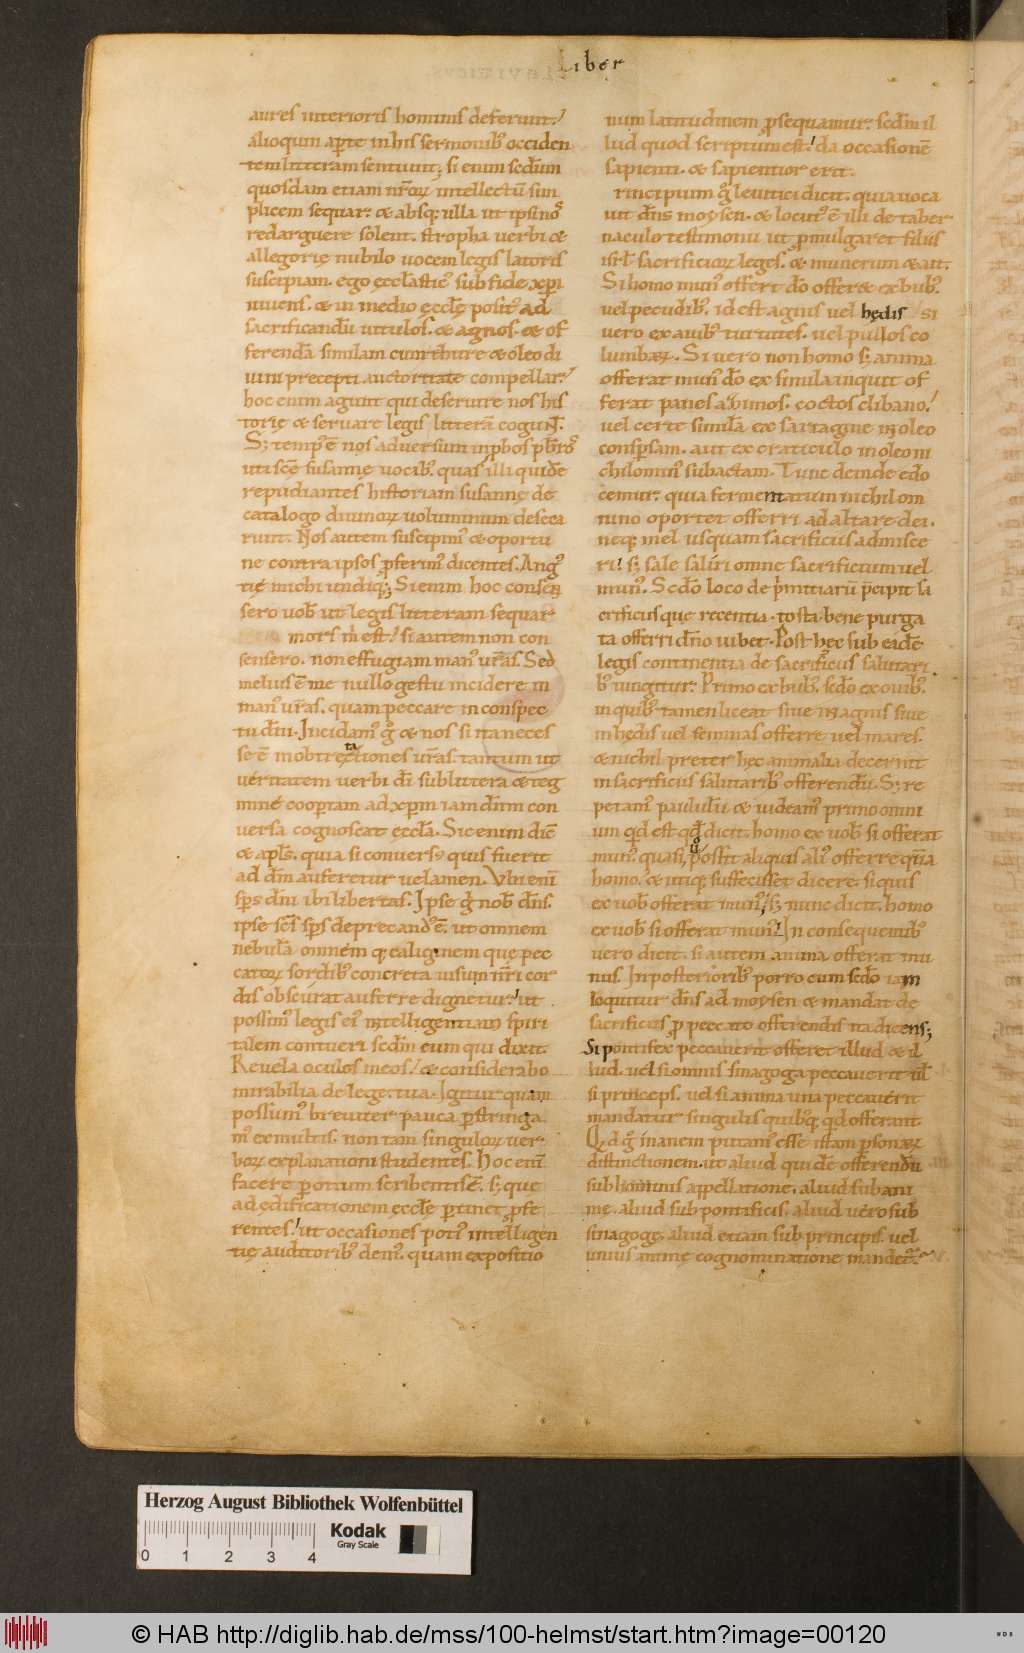 Liber
aures interioris hominis deferunt.
alioqum aꝑte in his sermonib; occiden
tem litteram sentiunt. si enim secd̄um
quosdam etiam nr̄oꝝ intellectū sim
plicem sequar. & absq; ulla ut ipsi nos
redarguere solent. stropha uerbi &
allegorię nubilo uocem legis latoris
suscipiam. ego eccl̄astic᾽ sub fide xp̄i
uiuens. & in medio ęccl̄ę posit᾽ ad
sacrificandū uitulos. & agnos. & of
ferendā similam cum thure & oleo di
uini precepti auctoritate compellar.
hoc enim agunt qui deseruire nos his
torię & seruare legis litterā cogunt.
S; temp᾽ ē nos aduersum inp̄bos pb̄ros
uti sc̄ę susannę uocib; quas illi quidē
repudiantes historiam susannę de
catalogo diuinoꝝ uoluminum deseca
runt. Nos autem suscipim᾽ & oportu
ne contra ipsos ꝓferim᾽ dicentes. Angus
tię michi undiq; Si enim hoc consen
sero uob̄ ut legis litteram sequar
mors m̄ est. si autem non con
sensero. non effugiam man᾽ ur̄as. Sed
melius ē me nullo gestu incidere in
man᾽ ur̄as. quam peccare in conspec
tu dn̄i. Incidam᾽ g & nos si ita neces
se ē in obtrectationes ur̄as. tantum ut
ueritatem uerbi dī sub littera & teg
mine coopertam ad xp̄m iam dn̄m con
uersa cognoscat eccl̄a. Sic enim dic̄
& apl̄s. quia si conuersus quis fuerit
ad dn̄m auferetur uelamen. Ubi eni
sp̄s dn̄i ibi libertas. Ipse g nob̄ dn̄s.
ipse sc̄s sp̄s deprecand᾽ ē. ut omnem
nebulā omnem q; caliginem que pec
catoꝝ sordib; concreta uisum nr̄i cor
dis obscurat auferre dignetur. ut
possim᾽ legis ei᾽ intelligentiam spiri
talem contueri secd̄m eum qui dixit.
Reuela oculos meos. & considerabo
mirabilia de lege tua. Igitur quam
possum᾽ breuiter pauca ꝑstringa
m᾽ ex multis. non tam singuloꝝ uer
boꝝ explanationi studentes. Hoc eni
facere ꝑ otium scribentis ē. s; que
ad ędificationem ęccl̄ę ꝑtinet ꝓfe
rentes. ut occasiones poti᾽ intelligen
tię auditorib; dem᾽. quam expositio
num latitudinem ꝓsequamur. secd̄m il
lud quod scriptum est. da occasionē
sapienti. & sapientior erit.
rincipium g leuitici dicit. quia uoca
uit dn̄s moysen. & locut᾽ ē illi de taber
naculo testimonii ut ꝓmulgaret filiis
isrl̄ sacrificioꝝ leges. & munerum & ait.
Si homo mun᾽ offert dō offeret ex bub;
uel pecudib; id est agnis uel hędis si
uero ex auib; turtures. uel pullos co
lumbaꝝ. Si uero non homo s; anima
offerat mun᾽ dō ex simila inquit of
ferat panes azimos. coctos clibano.
uel certe similā ex sartagine in oleo
consꝑsam. aut ex craticulo in oleo ni
chilomin᾽ subactam. Tunc deinde edo
cemur. quia fermentatum nichil om
nino oportet offerri ad altare dei.
neq; mel usquam sacrificiis admisce
ri. s; sale saliri omne sacrificium uel
mun᾽. Secdō loco de primitiarū p̄cipit sa
crificiis que recentia. tosta. bene purga
ta offerri dn̄o iubet. Post hęc sub eadē
legis continentia de sacrificiis salutari
b; iungitur. Primo ex bub; secdō ex ouib;
in quib; tamen liceat siue in agnis siue
in hędis uel feminas offerre uel mares.
& nichil preter hęc animalia decernit
in sacrificiis salutarib; offerendū. S; re
petam᾽ paululū & uideam᾽ primo omni
um qd̄ est qd̄ dicit. homo ex uob̄ si offerat
mun᾽. quasi uo possit aliquis ali᾽ offerre qua
homo. & utiq; suffecisset dicere. si quis
ex uob̄ offerat mun᾽. s; nunc dicit. homo
ex uob̄ si offerat mun᾽. In consequentib;
uero dicit. si autem anima offerat mu
nus. In posteriorib; porro cum secdō iam
loquitur dn̄s ad moysen & mandat de
sacrificiis ꝓ peccato offerendis ita dicens;
Si pontifex peccauerit offeret illud & il
lud. uel si omnis sinagoga peccauerit ul̄
si princeps. uel si anima una peccauerit
mandatur singulis quibusq; qd̄ offerant
Qd̄ g inanem putam᾽ esse istam ꝑsonaꝝ
distinctionem. ut aliud quidē offerendū
sub hominis appellatione. aliud sub ani
mę. aliud sub pontificis. aliud uero sub
sinagogę. aliud etiam sub principis. uel
unius animę cognominatione mandet.
Herzog August Bibliothek Wolfenbüttel
Kodak
Gray Scale
0 1 2 3 4
© HAB http://diglib.hab.de/mss/100-helmst/start.htm?image=00120